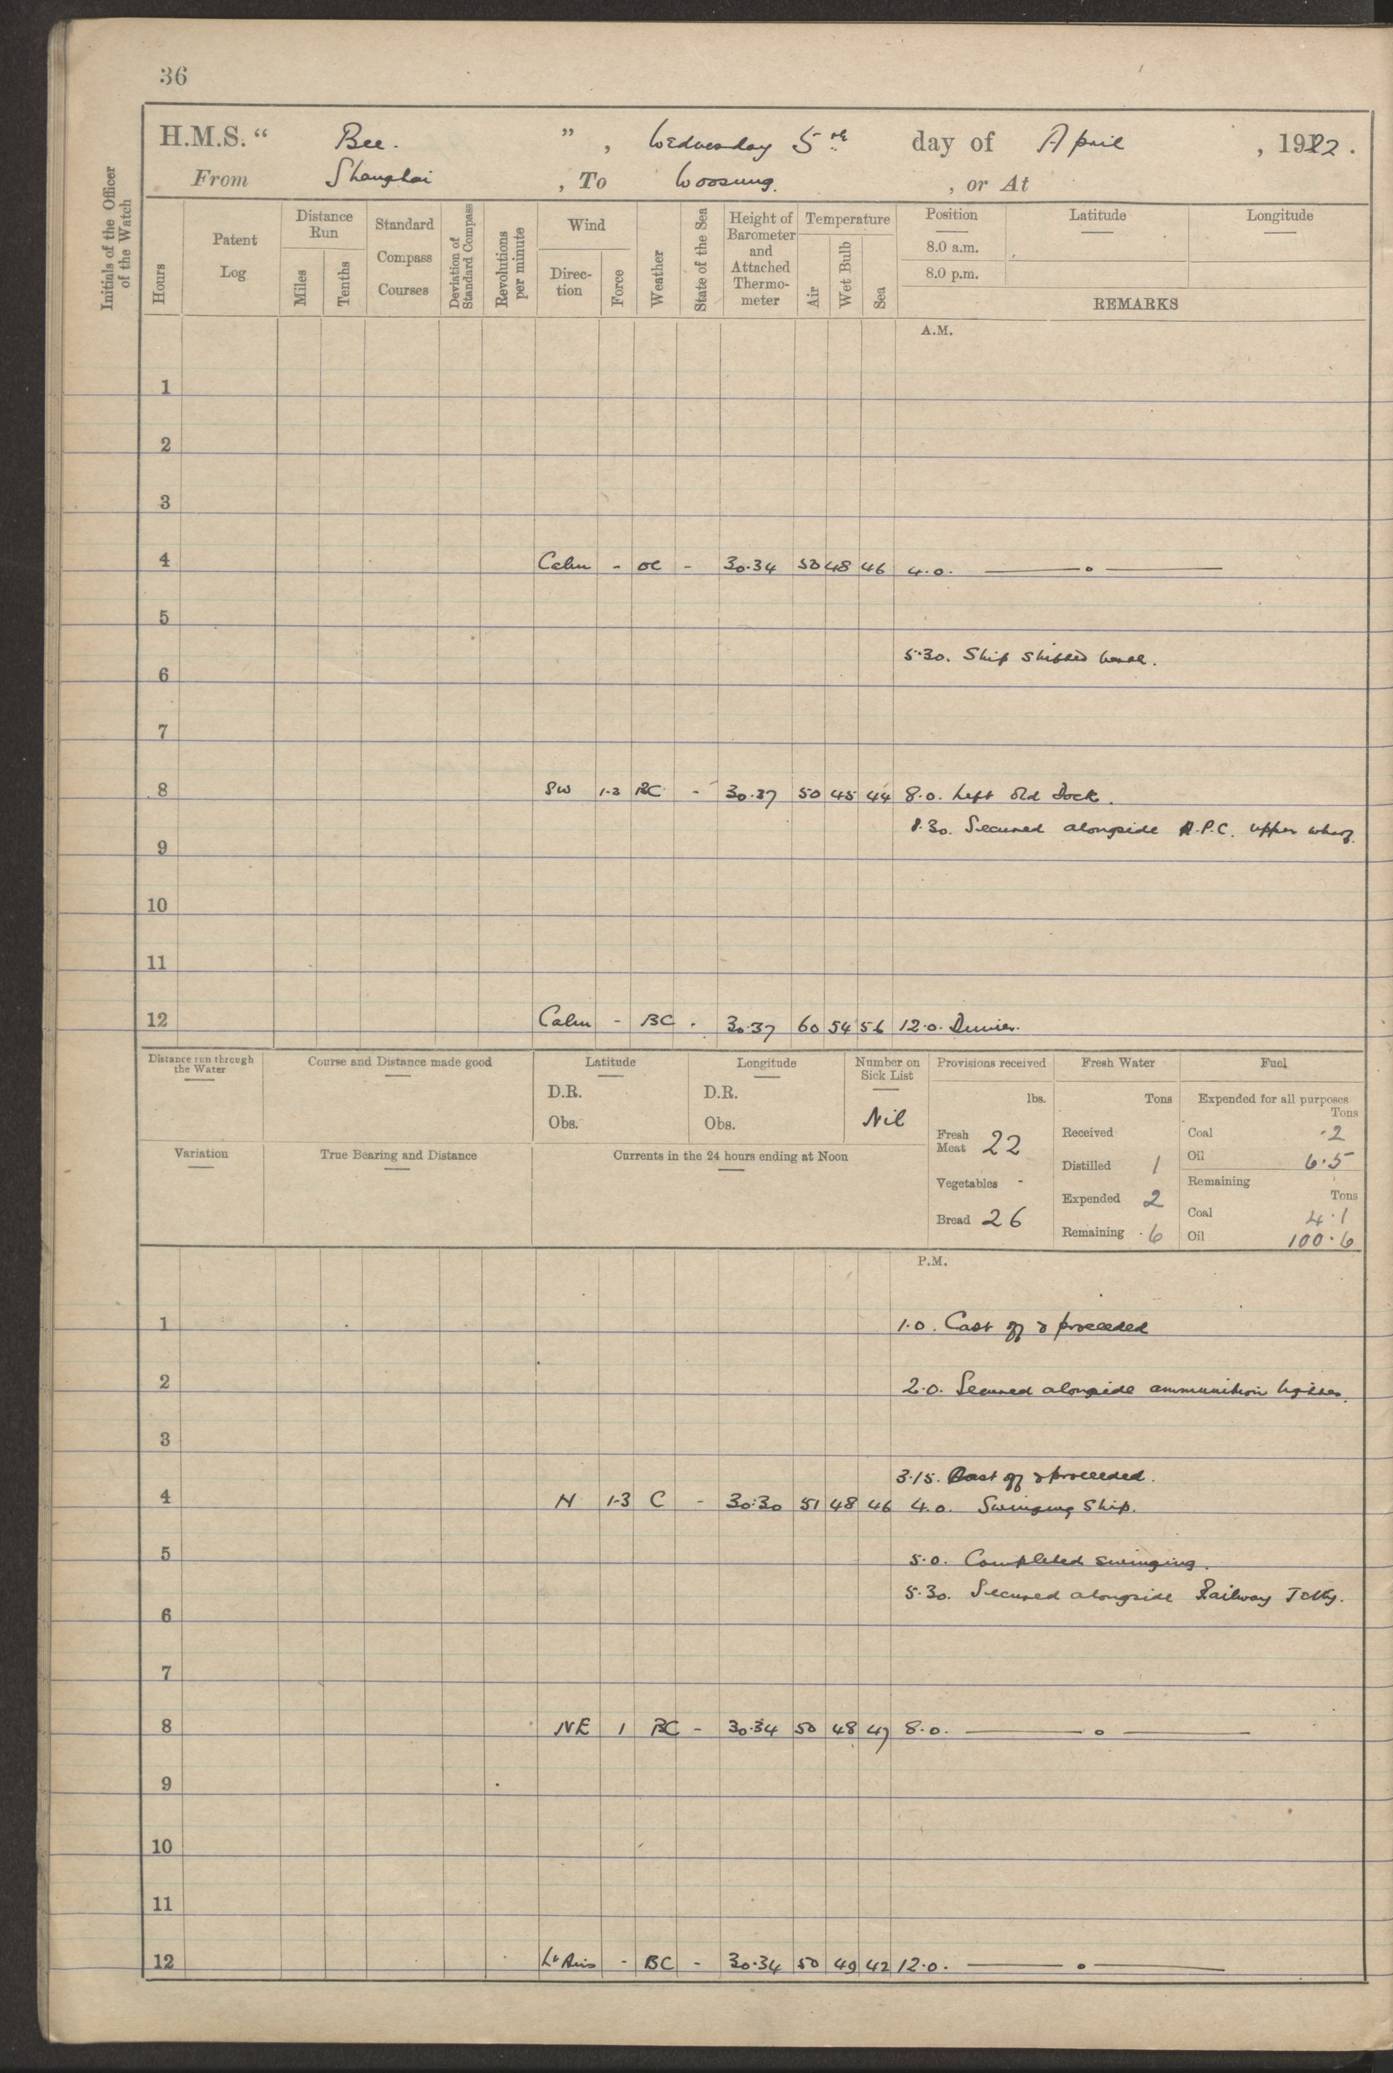 36
H.M.S. “ Bee. ” , Wednesday 5th day of April , 1922 .
From Shanghai , To Woosung. , or At
Initials of the Officer of the Watch
Hours
Patent Log
Distance Run
Miles
Tenths
Standard Compass Courses
Deviation of Standard Compass
Revolutions per minute
Wind
Direction
Force
Weather
State of the Sea
Height of Barometer and Attached Thermometer
Temperature
Air
Wet Bulb
Sea
Position
8.0 a.m.
8.0 p.m.
Latitude
Longitude
REMARKS
A.M.
1
2
3
4 Calm - oc - 30.34 50 48 46 4.0. —— o ——
5
5.30. Ship shifted berth.
6
7
8 SW 1-2 BC - 30.37 50 45 44 8.0. Left Old Dock.
8.30. Secured alongside A.P.C. upper wharf.
9
10
11
12 Calm - BC . 30.37 60 54 56 12.0. Dinner.
Distance run through the Water
Course and Distance made good
Latitude
D.R.
Obs.
Longitude
D.R.
Obs.
Number on Sick List
Nil
Provisions received
lbs.
Fresh Meat 22
Vegetables -
Bread 26
Fresh Water
Tons
Received
Distilled 1
Expended 2
Remaining 6
Fuel
Expended for all purposes
Tons
Coal .2
Oil 6.5
Remaining
Tons
Coal 4.1
Oil 100.6
Variation
True Bearing and Distance
Currents in the 24 hours ending at Noon
P.M.
1 1.0. Cast off & proceeded
2 2.0. Secured alongside ammunition lighter.
3
3.15. Cast off & proceeded.
4 N 1-3 C - 30.30 51 48 46 4.0. Swinging Ship.
5 5.0. Completed swinging.
5.30. Secured alongside Railway Jetty.
6
7
8 NE 1 BC - 30.34 50 48 47 8.0. —— o ——
9
10
11
12 Lt Airs - BC - 30.34 50 49 42 12.0. —— o ——